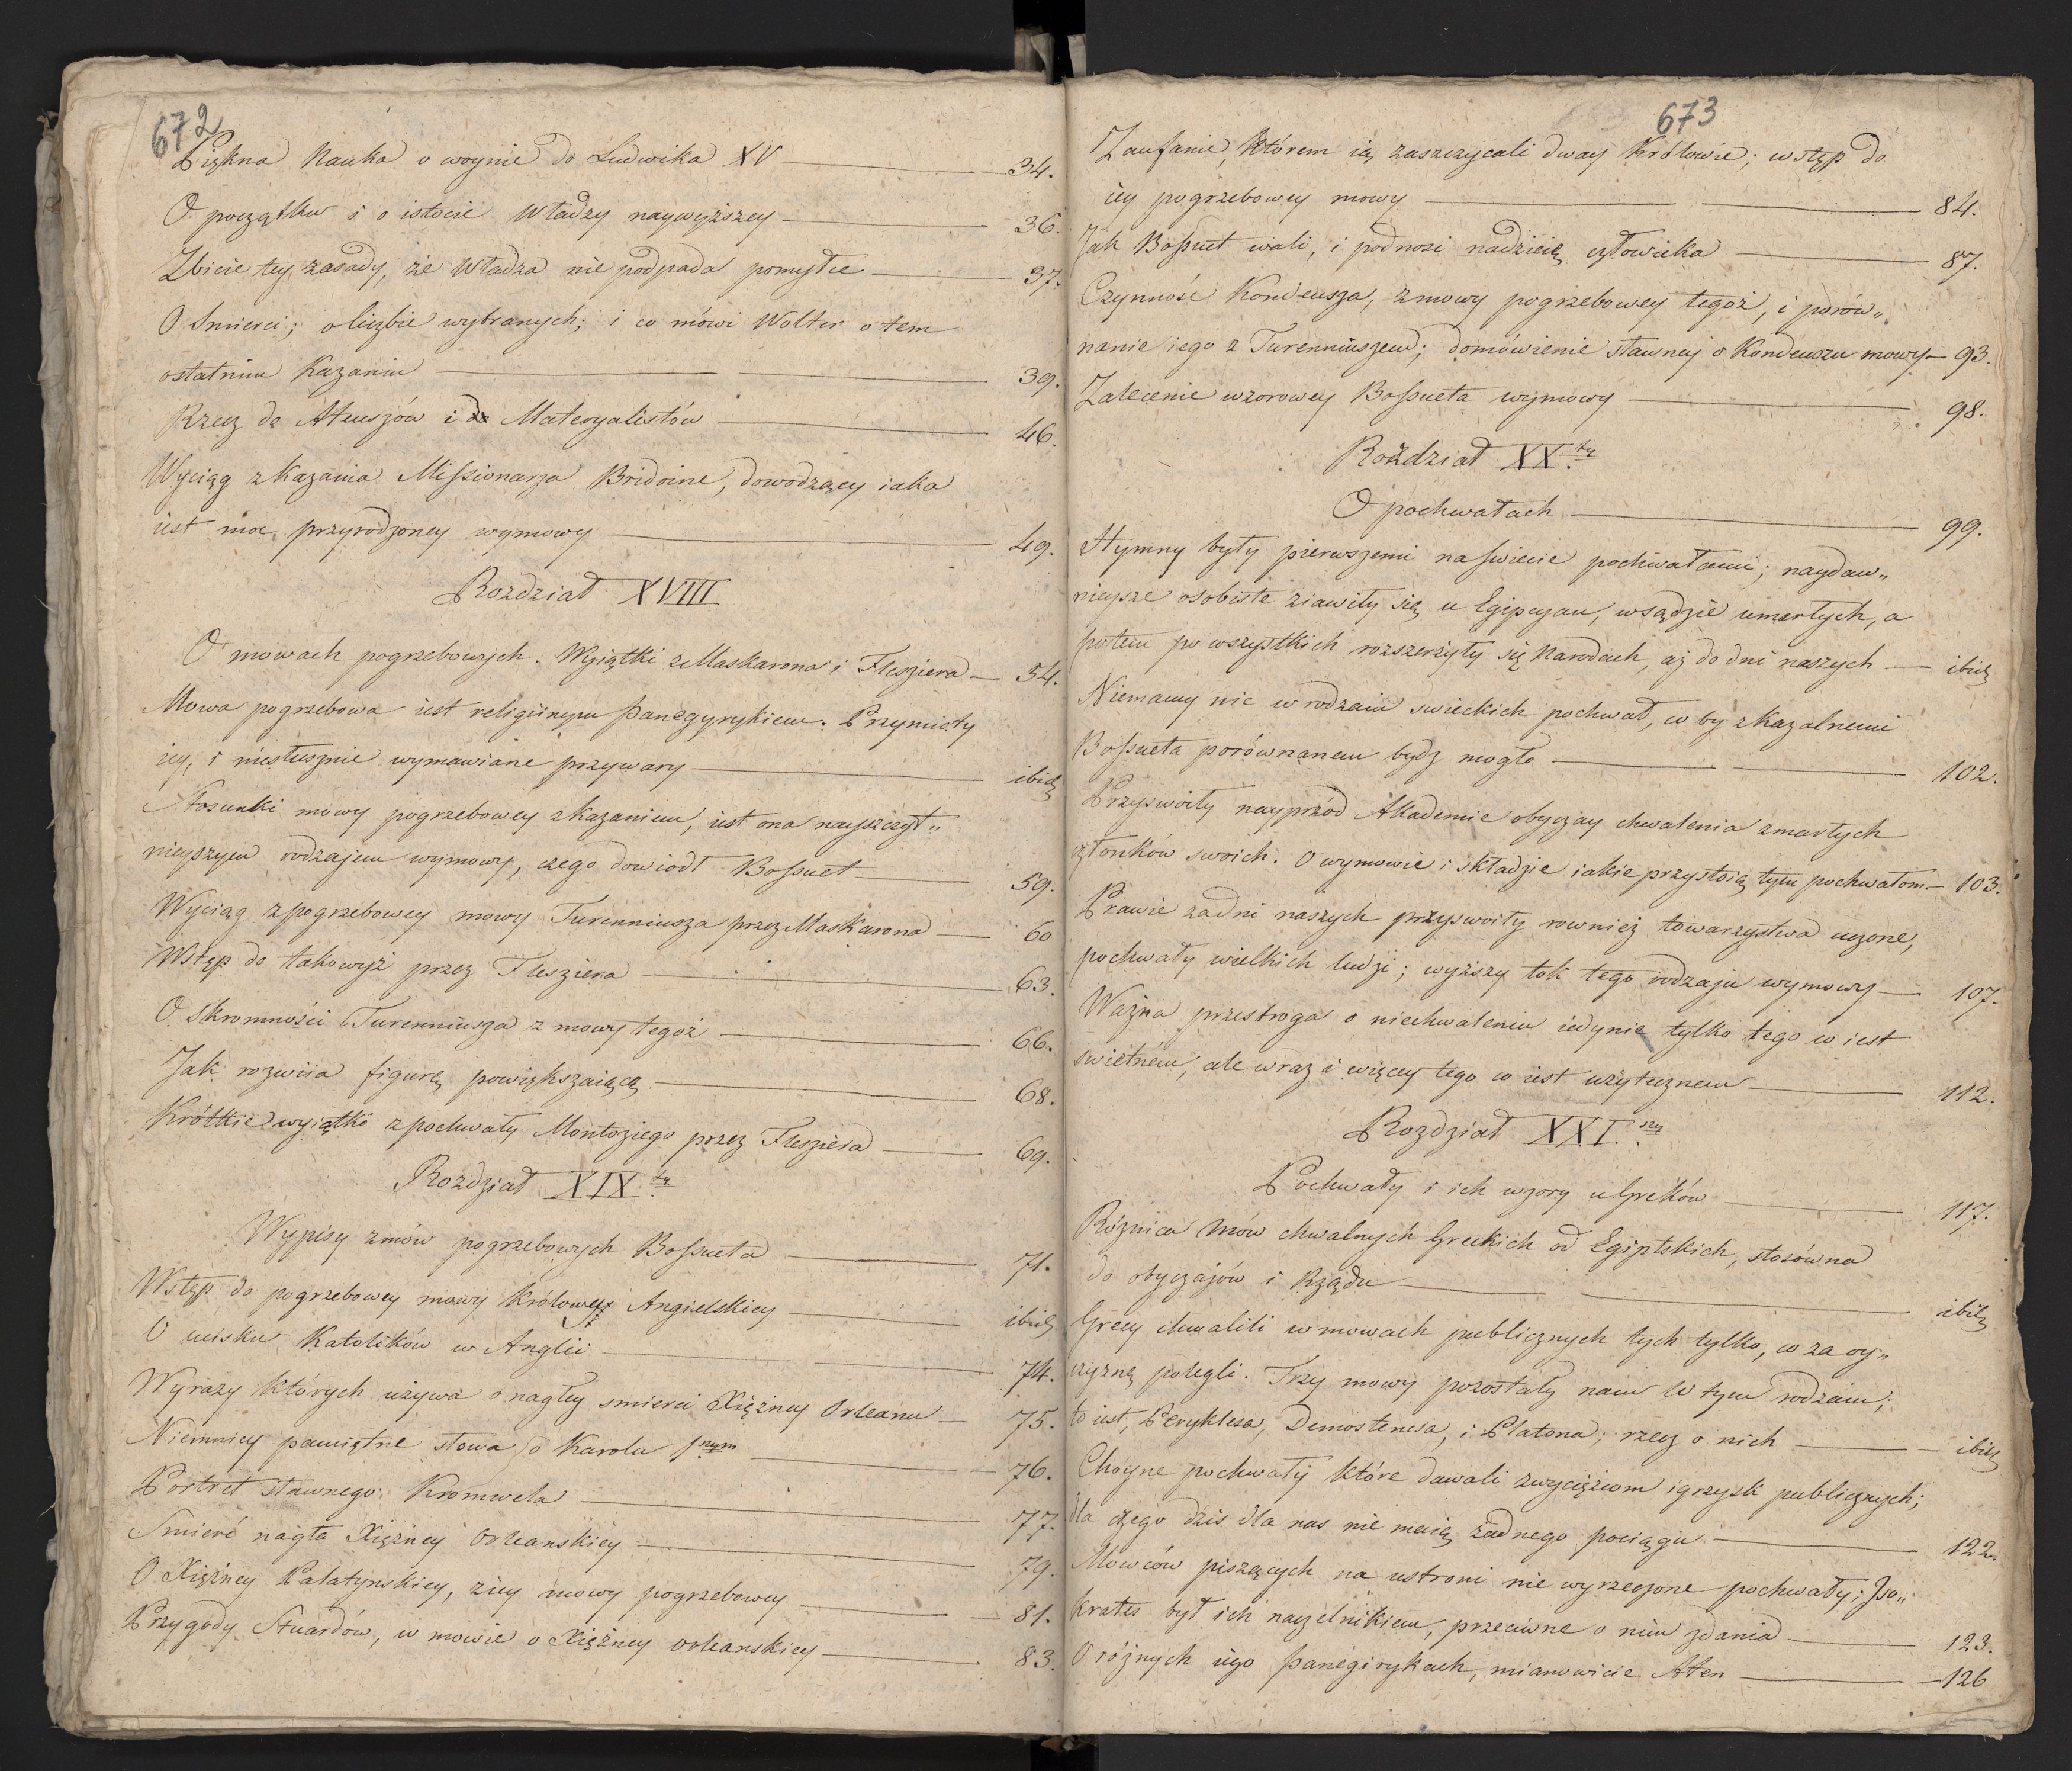 672
Piękna Nauka o woynie do Ludwika XV — 34.
O początku i o istocie Władzy naywyższey — 36.
Zbicie tey zasady, że Władza nie podpada pomyłce — 37.
O Smierci; o liczbie wybranych; i co mówi Wolter o tem
ostatnim Kazaniu — 39.
Rzecz do Ateuszów i Materyalistów — 46.
Wyciąg z Kazania Missionarza Bridoine, dowodzący iaka
iest moc przyrodzoney wymowy — 49.
Rozdział XVIII
O mowach pogrzebowych. Wyiątki z Maskarona i Flesziera — 54.
Mowa pogrzebowa iest religiinym Panegyrykiem. Przymioty
iey, i niesłusznie wymawiane przywary — ibid
Stosunki mowy pogrzebowey z kazaniem, iest ona nayszczyt„
nieyszym rodzajem wymowy, czego dowiodł Bossuet — 59.
Wyciąg z pogrzebowey mowy Turenniusza przez Maskarona — 60
Wstęp do takowyż przez Flesziera — 63.
O Skromności Turenniusza z mowy tegoż — 66.
Jak rozwiia figurę powiększaiącą — 68.
Krótkie wyiątki z pochwały Montoziego przez Flesziera — 69.
Rozdział XIX ty
Wypisy z mów pogrzebowych Bossueta — 71.
Wstęp do pogrzebowey mowy Królowey Angielskiey — ibid
O ucisku Katolików w Anglii — 74.
Wyrazy których używa o nagłey smierci Xiężney Orleanu — 75.
Niemniey pamiętne słowa o Karolu 1nym — 76.
Portret sławnego Kromwela — 77.
Smierć nagła Xiężney Orleanskiey — 79.
O Xiężney Palatynskiey, z iey mowy pogrzebowey — 81.
Przygody Stuardów, w mowie o Xiężney orleanskiey — 83.
673
Zaufanie, Którem ią zaszczycali dway Królowie; wstęp do
iey pogrzebowey mowy — 84.
Jak Bossuet wali, i podnosi nadzieię człowieka — 87.
Czynność Kondeusza, z mowy pogrzebowey tegoż, i porów„
nanie iego z Turenniuszem; domówienie sławney o Kondeuszu mowy — 93.
Zalecenie wzorowey Bossueta wymowy — 98.
Rozdział XX. ty
O pochwałach — 99.
Hymny były pierwszemi na swiecie pochwałami; naydaw„
nieysze osobiste ziawiły się u Egipcyan, w sądzie umarłych, a
potem po wszystkich rozszerzyły się Narodach, aż do dni naszych — ibid
Niemamy nic w rodzaiu swieckich pochwał, co by z kazalnemi
Bossueta porównanem bydz mogło — 102.
Przyswoiły nayprzód Akademie obyczay chwalenia zmarłych
członków swoich. O wymowie i składzie iakie przystoią tym pochwałom. — 103.
Prawie za dni naszych przyswoiły rownież towarzystwa uczone,
pochwały wielkich ludzi; wyższy tok tego rodzaju wymowy — 107.
Ważna przestroga o niechwaleniu iedynie tylko tego co iest
swietnem, ale wraz i więcey tego co iest użytecznem — 112.
Rozdział XXI. szy
Pochwały i ich wzory u Greków — 117.
Róznica Mów chwalnych Greckich od Egiptskich, stosówna
do obyczajów i Rządu — ibid
Grecy chwalili w mowach publicznych tych tylko, co za oy„
czyznę polegli. Trzy mowy pozostały nam w tym rodzaiu;
to iest, Peryklesa, Demostenesa, i Platona; rzecz o nich — ibid
Choyne pochwały które dawali zwycięzcom igrzysk publicznych;
dla czego dzis dla nas nie maią żadnego pociągu. — 122.
Mowców piszących na ustroni nie wyrzeczone pochwały; Izo„
krates był ich naczelnikiem, przeciwne o nim zdania — 123.
O różnych iego Panegirykach, mianowicie Aten — 126